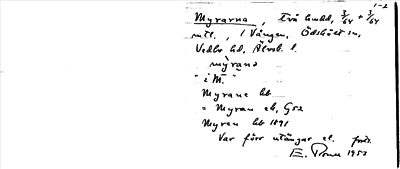 1-2
Myrarna, två lindd, 3/64 + 3/64
mtl., i Vången, Ödskölt sn,
Vedbo hd, Älvsb. l.
myrana
"i M."
Myrane hb
= Myran ek, G52
Myren hb 1891
Var förr utängar el.
E. 1953